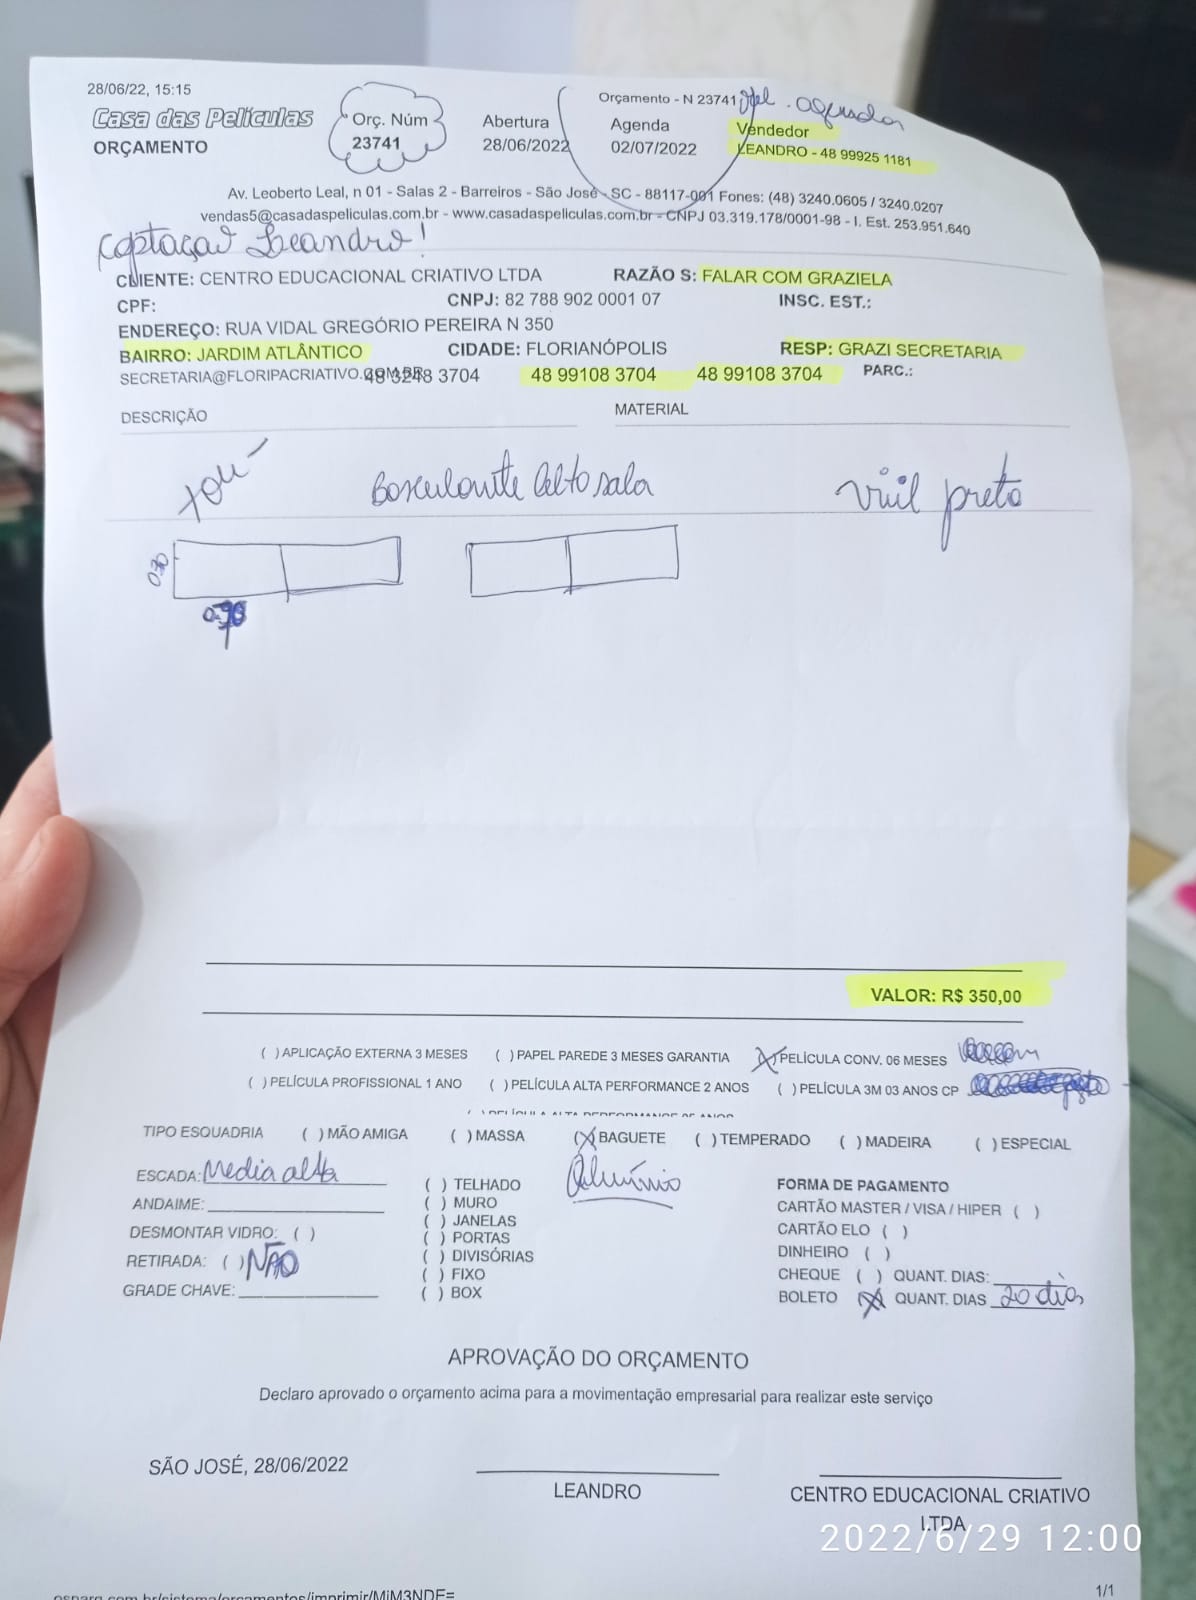 28/06/22, 15:15
Orçamento - N 23741
Casa das Películas
ORÇAMENTO
Orç. Núm
23741
Abertura
28/06/2022
Agenda
02/07/2022
Vendedor
LEANDRO - 48 99925 1181
Av. Leoberto Leal, n 01 - Salas 2 - Barreiros - São José - SC - 88117-001 Fones: (48) 3240.0605 / 3240.0207
vendas5@casadaspeliculas.com.br - www.casadaspeliculas.com.br - CNPJ 03.319.178/0001-98 - I. Est. 253.951.640
Captação Leandro!
CLIENTE: CENTRO EDUCACIONAL CRIATIVO LTDA RAZÃO S: FALAR COM GRAZIELA
CPF: CNPJ: 82 788 902 0001 07 INSC. EST.:
ENDEREÇO: RUA VIDAL GREGÓRIO PEREIRA N 350
BAIRRO: JARDIM ATLÂNTICO CIDADE: FLORIANÓPOLIS RESP: GRAZI SECRETARIA
SECRETARIA@FLORIPACRIATIVO. 48 3248 3704 48 99108 3704 48 99108 3704 PARC.:
DESCRIÇÃO MATERIAL
Basculante Alto sala preto
0.30
VALOR: R$ 350,00
( ) APLICAÇÃO EXTERNA 3 MESES ( ) PAPEL PAREDE 3 MESES GARANTIA (X) PELÍCULA CONV. 06 MESES
( ) PELÍCULA PROFISSIONAL 1 ANO ( ) PELÍCULA ALTA PERFORMANCE 2 ANOS ( ) PELÍCULA 3M 03 ANOS CP
TIPO ESQUADRIA ( ) MÃO AMIGA ( ) MASSA (X) BAGUETE ( ) TEMPERADO ( ) MADEIRA ( ) ESPECIAL
Alumínio
ESCADA: Media alta
ANDAIME:
DESMONTAR VIDRO: ( )
RETIRADA: ( ) NÃO
GRADE CHAVE:
( ) TELHADO
( ) MURO
( ) JANELAS
( ) PORTAS
( ) DIVISÓRIAS
( ) FIXO
( ) BOX
FORMA DE PAGAMENTO
CARTÃO MASTER / VISA / HIPER ( )
CARTÃO ELO ( )
DINHEIRO ( )
CHEQUE ( ) QUANT. DIAS:
BOLETO (X) QUANT. DIAS 20 dias
APROVAÇÃO DO ORÇAMENTO
Declaro aprovado o orçamento acima para a movimentação empresarial para realizar este serviço
SÃO JOSÉ, 28/06/2022
LEANDRO
CENTRO EDUCACIONAL CRIATIVO
LTDA
2022/6/29 12:00
1/1